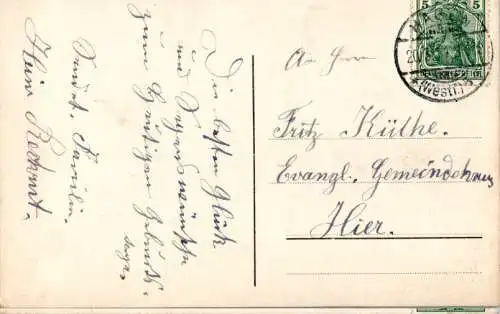 Die besten Glück
und Segenswünsche
zum heutigen Geburts-
tage
Sendet. Familie.
Hein
An Herrn
Fritz Küthe.
Evangl. Gemeindehaus
Hier.
5 5
(Westf.)